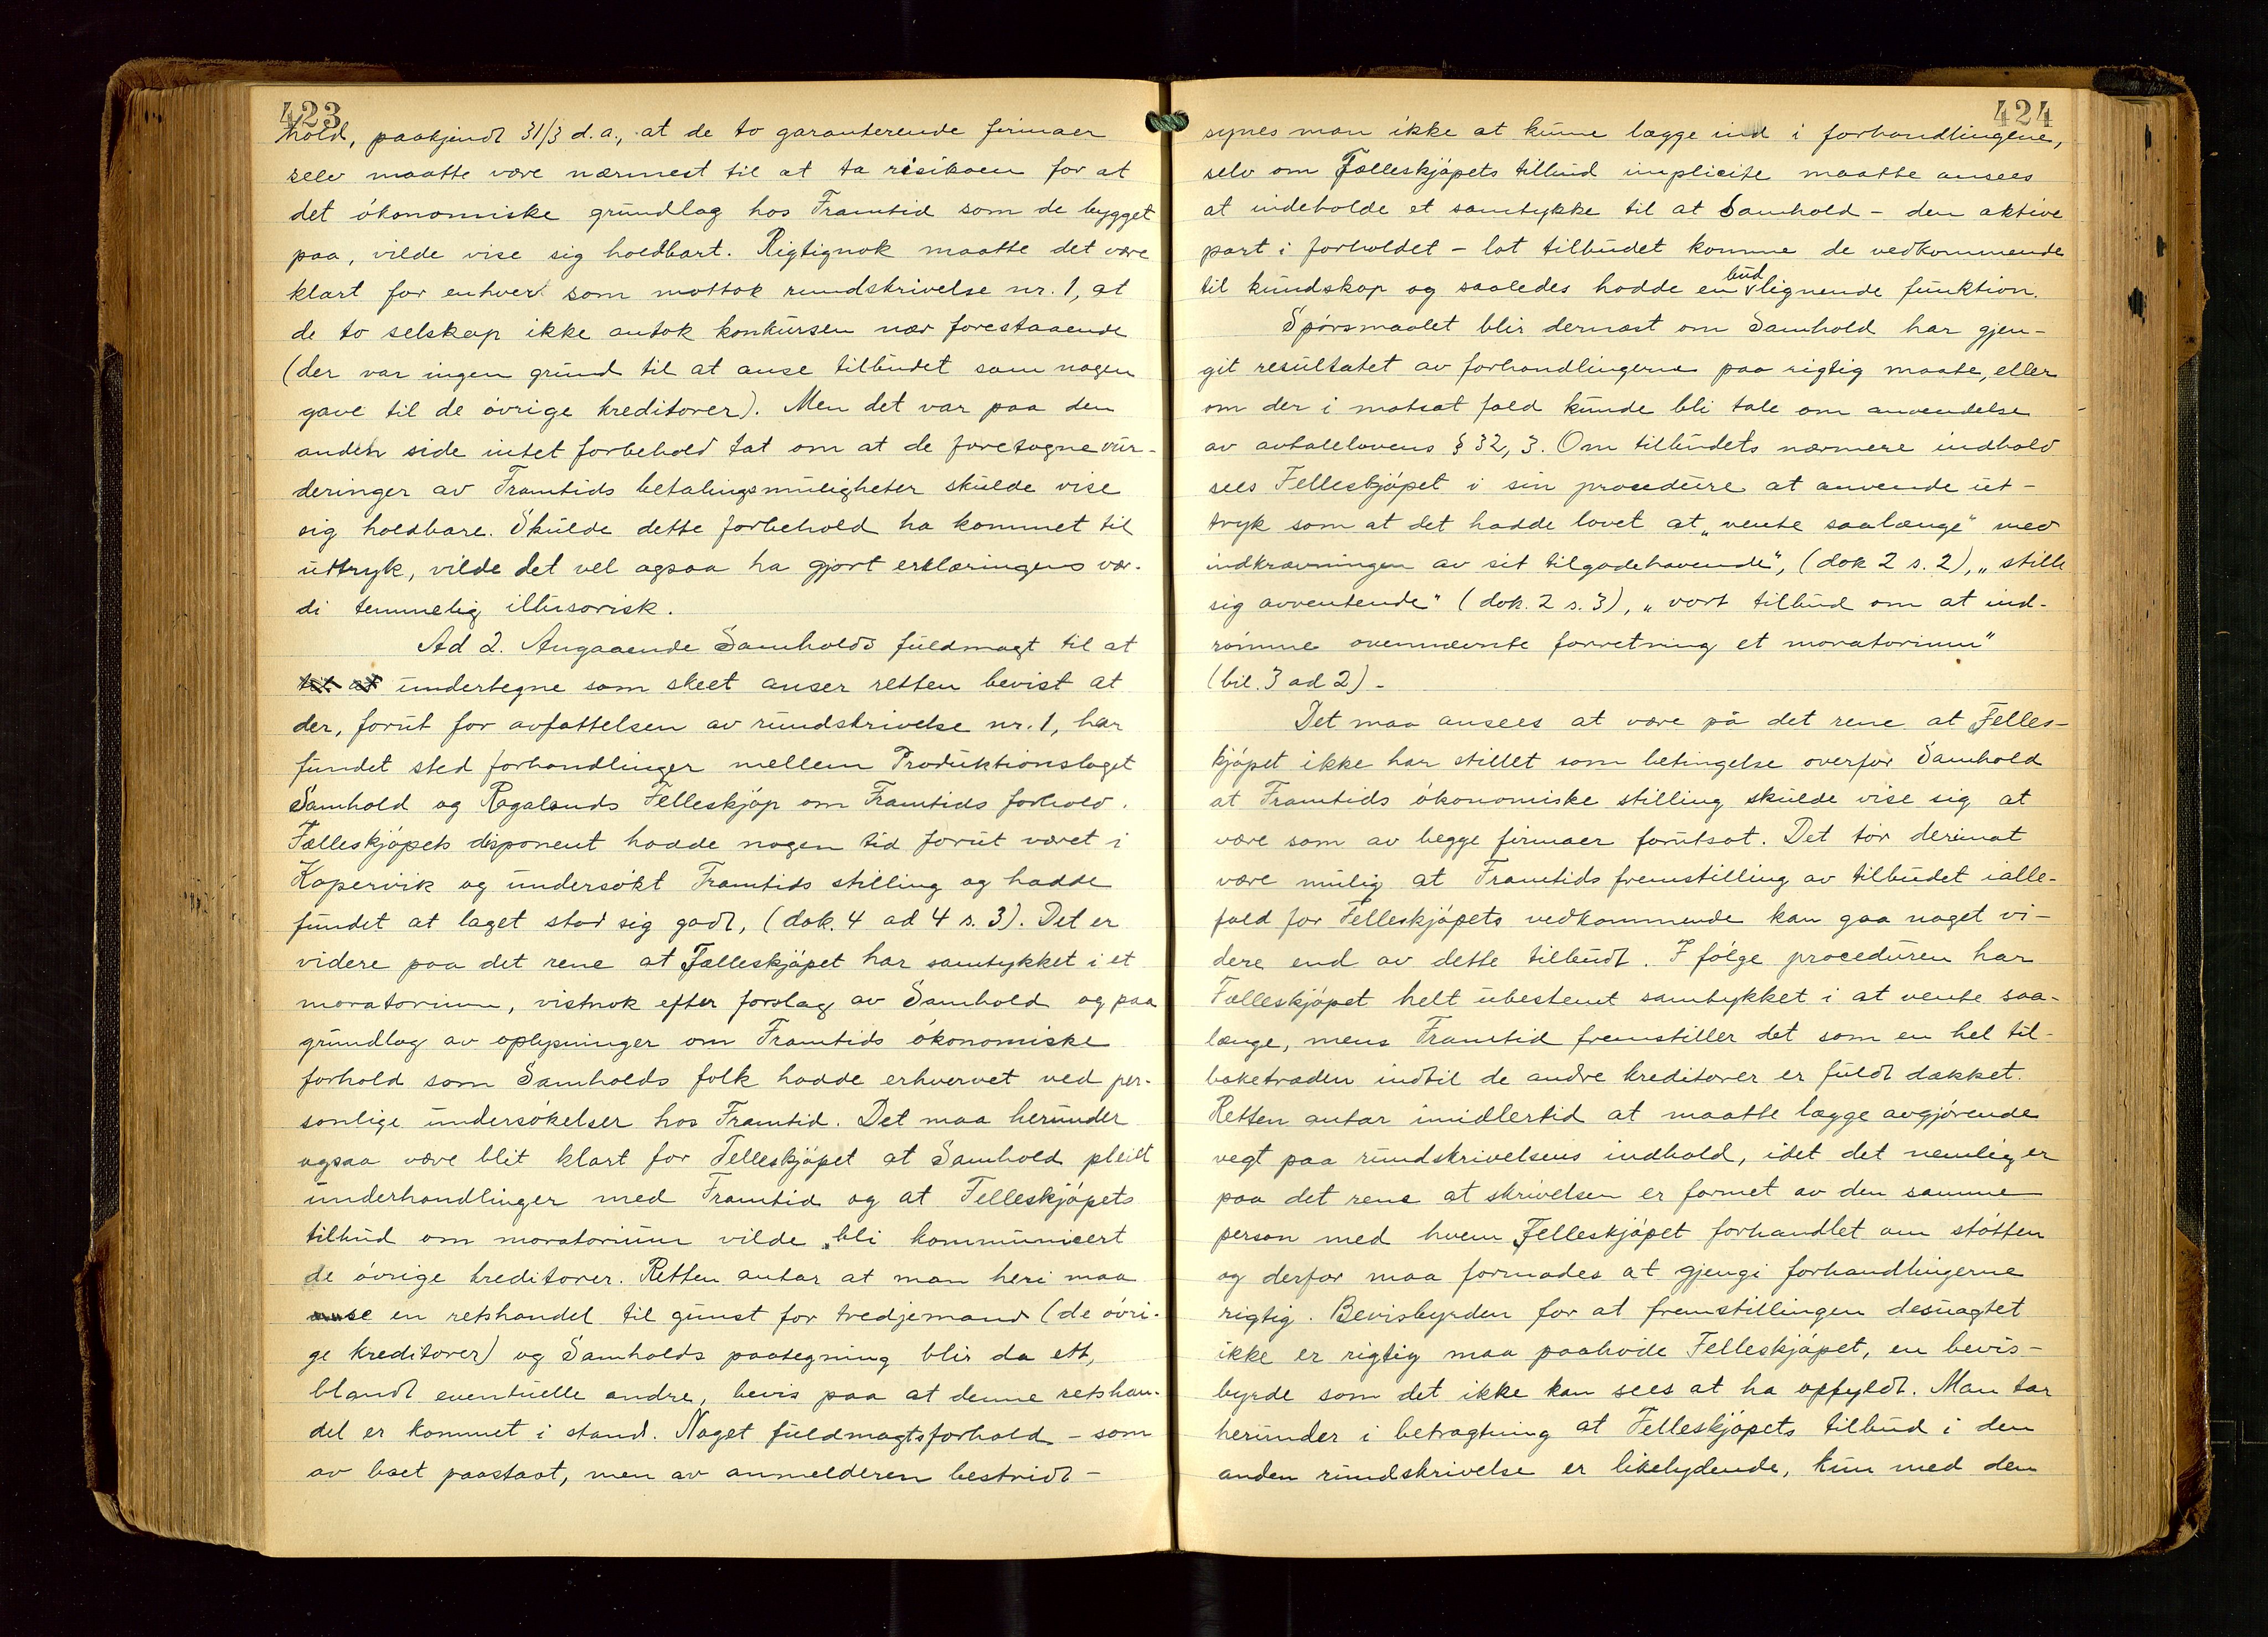 423
hold, paakjendt 31/3 d.a., at de to garanterende firmaer
selv maatte være nærmest til at ta risikoen for at
det ökonomiske grundlag hos Framtid som de bygget
paa, vilde vise sig holdbart. Rigtignok maatte det være
klart for enhver som mottok rundskrivelse nr. 1, at
de to selskap ikke antok konkursen nær forestaaende
(der var ingen grund til at anse tilbudet som nogen
gave til de övrige kreditorer). Men det var paa den
anden side intet forbehold tat om at de foretagne vur-
deringer av Framtids betalingsmuligheter skulde vise
sig holdbare. Skulde dette forbehold ha kommet til
uttryk, vilde det vel ogsaa ha gjort erklæringens vær-
di temmelig illusorisk.
Ad 2. Angaaende Samholds fuldmagt til at
til at undertegne som skeet anser retten bevist at
der, forut for avfattelsen av rundskrivelse nr. 1, har
fundet sted forhandlinger mellem Produktionslaget
Samhold og Rogalands Felleskjöp om Framtids forhold.
Fælleskjöpets disponent hadde nogen tid forut været i
Kopervik og undersökt Framtids stilling og hadde
fundet at laget stod sig godt, (dok. 4 ad 4 s. 3). Det er
videre paa det rene at Fælleskjöpet har samtykket i et
moratorium, vistnok efter forslag av Samhold og paa
grundlag av oplysninger om Framtids ökonomiske
forhold som Samholds folk hadde erhvervet ved per-
sonlige undersökelser hos Framtid. Det maa herunder
ogsaa være blit klart for Felleskjöpet at Samhold pleiet
underhandlinger med Framtid og at Felleskjöpets
tilbud om moratorium vilde bli kommunicert
de övrige kreditorer. Retten antar at man heri maa
anse en retshandel til gunst for tredjemand (de övri-
ge kreditorer) og Samholds paategning blir da ett,
blandt eventuelle andre, bevis paa at denne retshan-
del er kommet i stand. Noget fuldmagtsforhold – som
av boet paastaat, men av anmelderen bestridt –
424
synes man ikke at kunne lægge ind i forhandlingene,
selv om Fælleskjöpets tilbud implicite maatte ansees
at indeholde et samtykke til at Samhold – den aktive
part i forholdet – lot tilbudet komme de vedkommende
til kundskap og saaledes hadde en budlignende funktion.
Spörsmaalet blir dernæst om Samhold har gjen-
git resultatet av forhandlingerne paa rigtig maate, eller
om der i motsat fald kunde bli tale om anvendelse
av avtalelovens § 32, 3. Om tilbudets nærmere indhold
sees Felleskjöpet i sin procedure at anvende ut-
tryk som at det hadde lovet at „vente saalænge" med
indkrævningen av sit tilgodehavende", (dok 2 s. 2), „stille
sig avventende" (dok. 2 s. 3), „vort tilbud om at ind-
römme ovennævnte forretning et moratorium"
(bil. 3 ad 2).
Det maa ansees at være på det rene at Felles-
kjöpet ikke har stillet som betingelse overfor Samhold
at Framtids ökonomiske stilling skulde vise sig at
være som av begge firmaer forutsat. Det tör derimot
være mulig at Framtids fremstilling av tilbudet ialle-
fald for Felleskjöpets vedkommende kan gaa noget vi-
dere end av dette tilbudt. I fölge proceduren har
Fælleskjöpet helt ubestemt samtykket i at vente saa-
længe, mens Framtid fremstiller det som en hel til-
baketræden indtil de andre kreditorer er fuldt dækket.
Retten antar imidlertid at maatte lægge avgjörende
vegt paa rundskrivelsens indhold, idet det nemlig er
paa det rene at skrivelsen er formet av den samme
person med hvem Felleskjöpet forhandlet om stötten
og derfor maa formodes at gjengi forhandlingerne
rigtig. Bevisbyrden for at fremstillingen desuagtet
ikke er rigtig maa paahvile Felleskjöpet, en bevis-
byrde som det ikke kan sees at ha opfyldt. Man tar
herunder i betragtning at Felleskjöpets tilbud i den
anden rundskrivelse er likelydende, kun med den